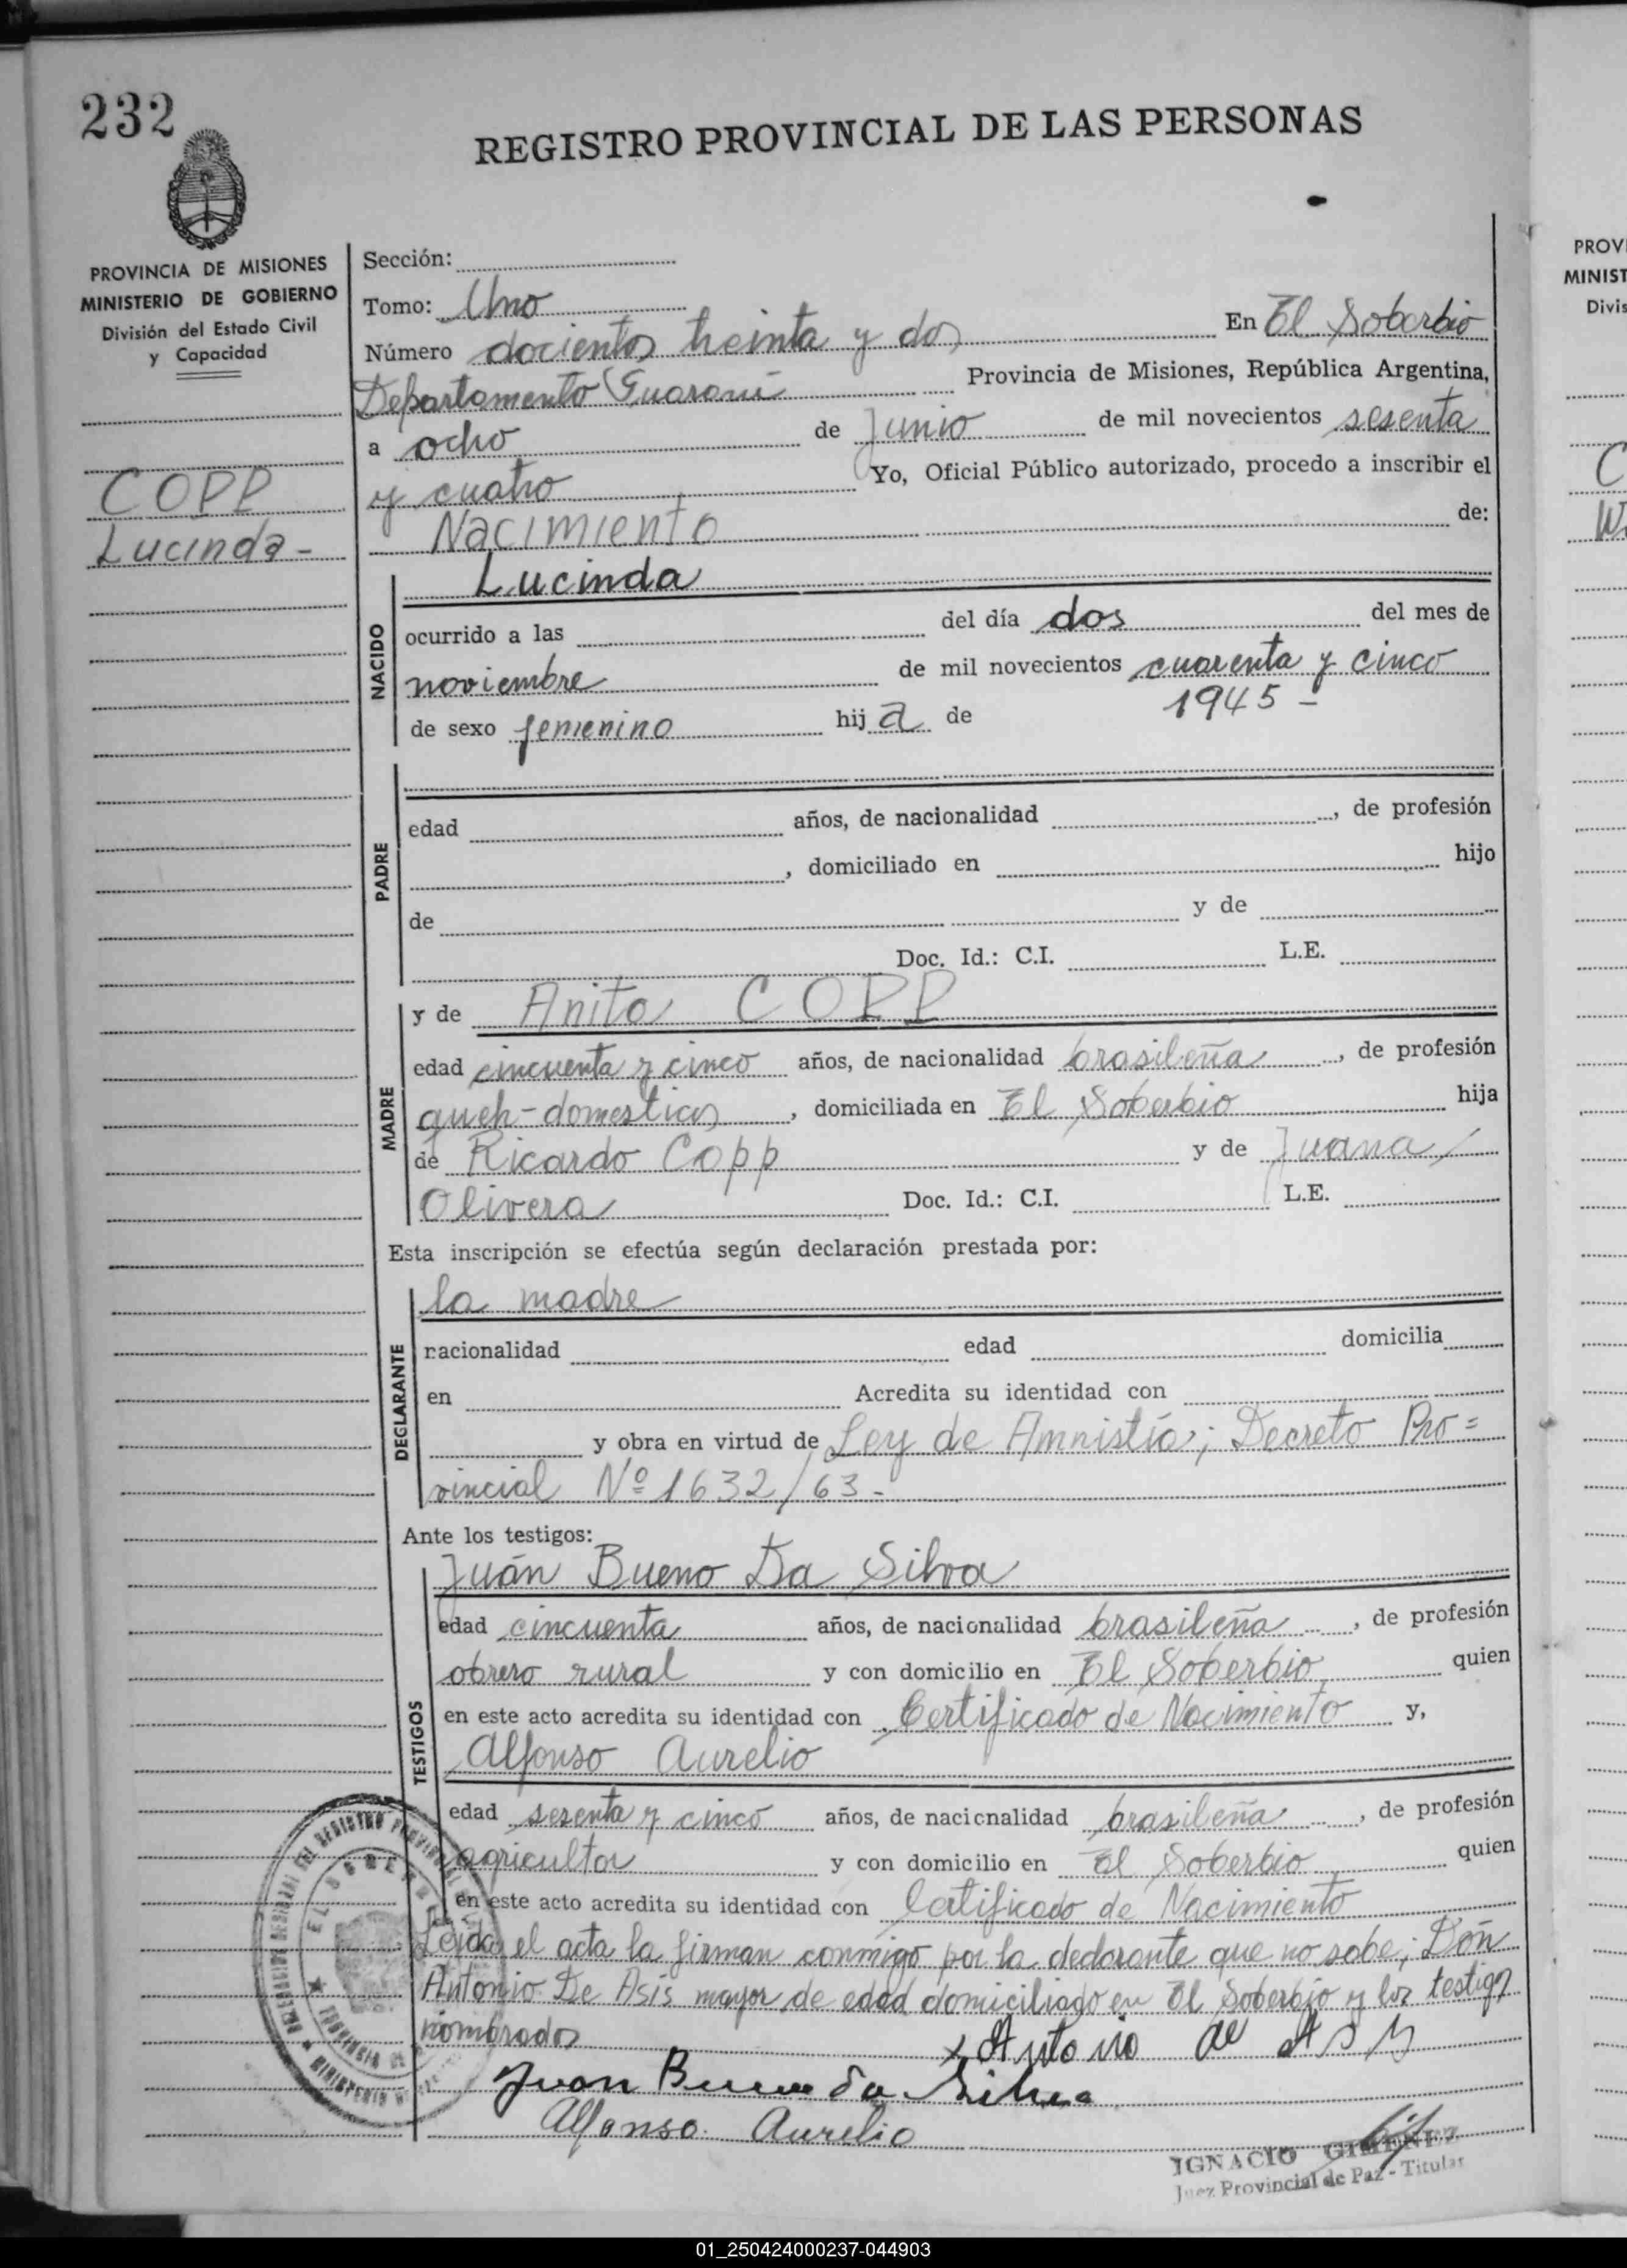 232
REGISTRO PROVINCIAL DE LAS PERSONAS
PROVINCIA DE MISIONES
MINISTERIO DE GOBIERNO
División del Estado Civil
y Capacidad
COPP
Lucinda-
Sección:
Tomo: Uno
Número docientos treinta y dos En El Soberbio
Departamento Guaraní Provincia de Misiones, República Argentina,
a ocho de Junio de mil novecientos sesenta
y cuatro Yo, Oficial Público autorizado, procedo a inscribir el
Nacimiento de:
NACIDO
Lucinda
ocurrido a las del día dos del mes de
noviembre de mil novecientos cuarenta y cinco
1945 -
de sexo femenino hij a de
PADRE
edad años, de nacionalidad , de profesión
, domiciliado en hijo
de y de
Doc. Id.: C.I. L.E.
MADRE
y de Anita COPP
edad cincuenta y cinco años, de nacionalidad brasileña , de profesión
queh-domesticos , domiciliada en El Soberbio hija
de Ricardo Copp y de Juana /
Olivera Doc. Id.: C.I. L.E.
Esta inscripción se efectúa según declaración prestada por:
DECLARANTE
la madre
nacionalidad edad domicilia
en Acredita su identidad con
y obra en virtud de Ley de Amnistía; Decreto Pro=
vincial Nº 1632/63-
Ante los testigos:
TESTIGOS
Juán Bueno Da Silva
edad cincuenta años, de nacionalidad brasileña , de profesión
obrero rural y con domicilio en El Soberbio quien
en este acto acredita su identidad con Certificado de Nacimiento y,
Alfonso Aurelio
edad sesenta y cinco años, de nacionalidad brasileña , de profesión
agricultor y con domicilio en El Soberbio quien
en este acto acredita su identidad con Certificado de Nacimiento
Leída el acta la firman conmigo por la declarante que no sabe; Don
Antonio De Asís mayor de edad domiciliado en El Soberbio y los testigos
nombrados
x Antonio de
Juan Bueno da Silva
Alfonso Aurelio
IGNACIO GIMENEZ
Juez Provincial de Paz - Titular
PROV
MINIST
Divis
C
W
01_250424000237-044903